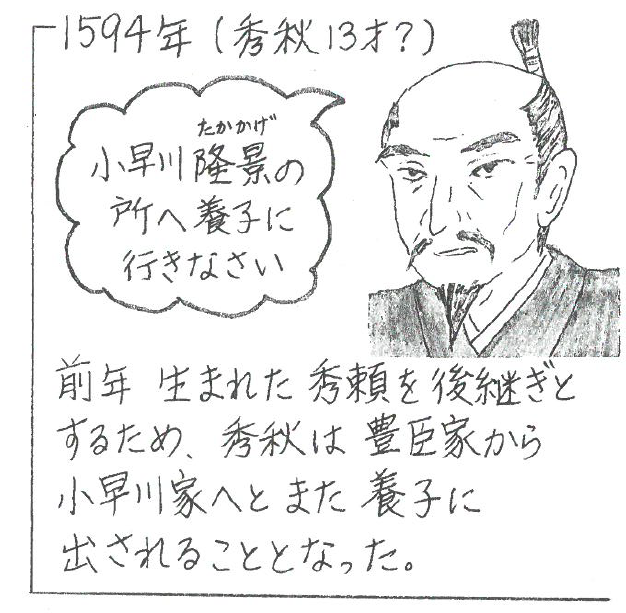 1594年(秀秋13才?)
たかかげ
小早川隆景の
所へ養子に
行きなさい
前年 生まれた 秀頼を後継ぎと
するため、秀秋は 豊臣家から
小早川家へと また 養子に
出されることとなった。